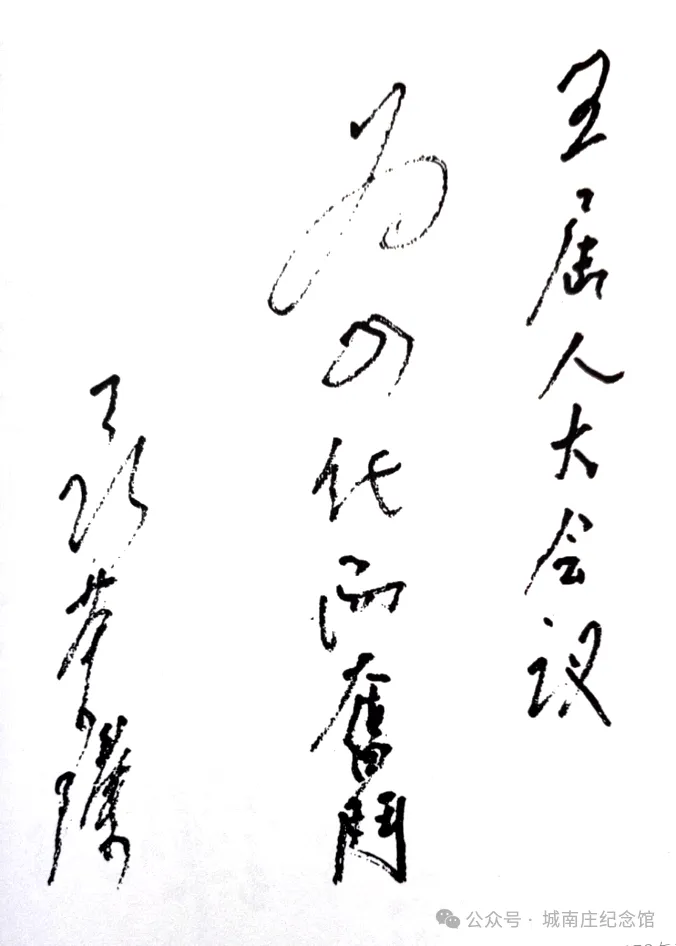 五届人大会议
为四化而奮鬥
公众号·城南庄纪念馆